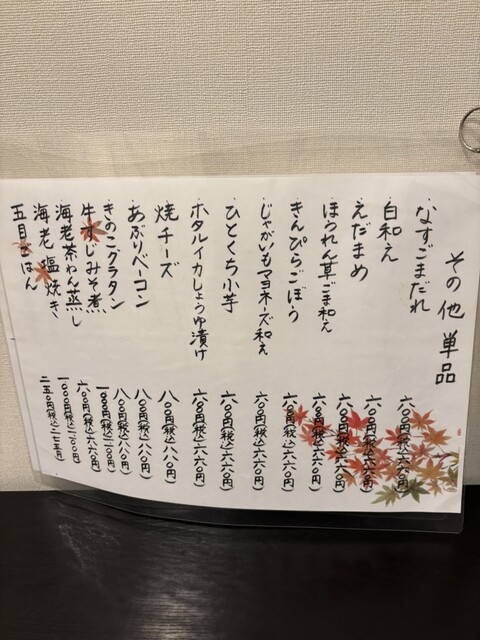 その他単品
・なすごまだれ 六〇〇円(税込六六〇円)
・白和え 六〇〇円(税込六六〇円)
・えだまめ 六〇〇円(税込六六〇円)
・ほうれん草ごま和え 六〇〇円(税込六六〇円)
・きんぴらごぼう 六〇〇円(税込六六〇円)
・じゃがいもマヨネーズ和え 六〇〇円(税込六六〇円)
・ひとくち小芋 六〇〇円(税込六六〇円)
・ホタルイカしょうゆ漬け 六〇〇円(税込六六〇円)
・焼チーズ 八〇〇円(税込八八〇円)
・あぶりベーコン 八〇〇円(税込八八〇円)
・きのこグラタン 八〇〇円(税込八八〇円)
・牛すじみそ煮 一〇〇〇円(税込一一〇〇円)
・海老茶わん蒸し 六〇〇円(税込六六〇円)
・海老塩焼き 一〇〇〇円(税込一一〇〇円)
・五目ごはん 二五〇円(税込二七五円)